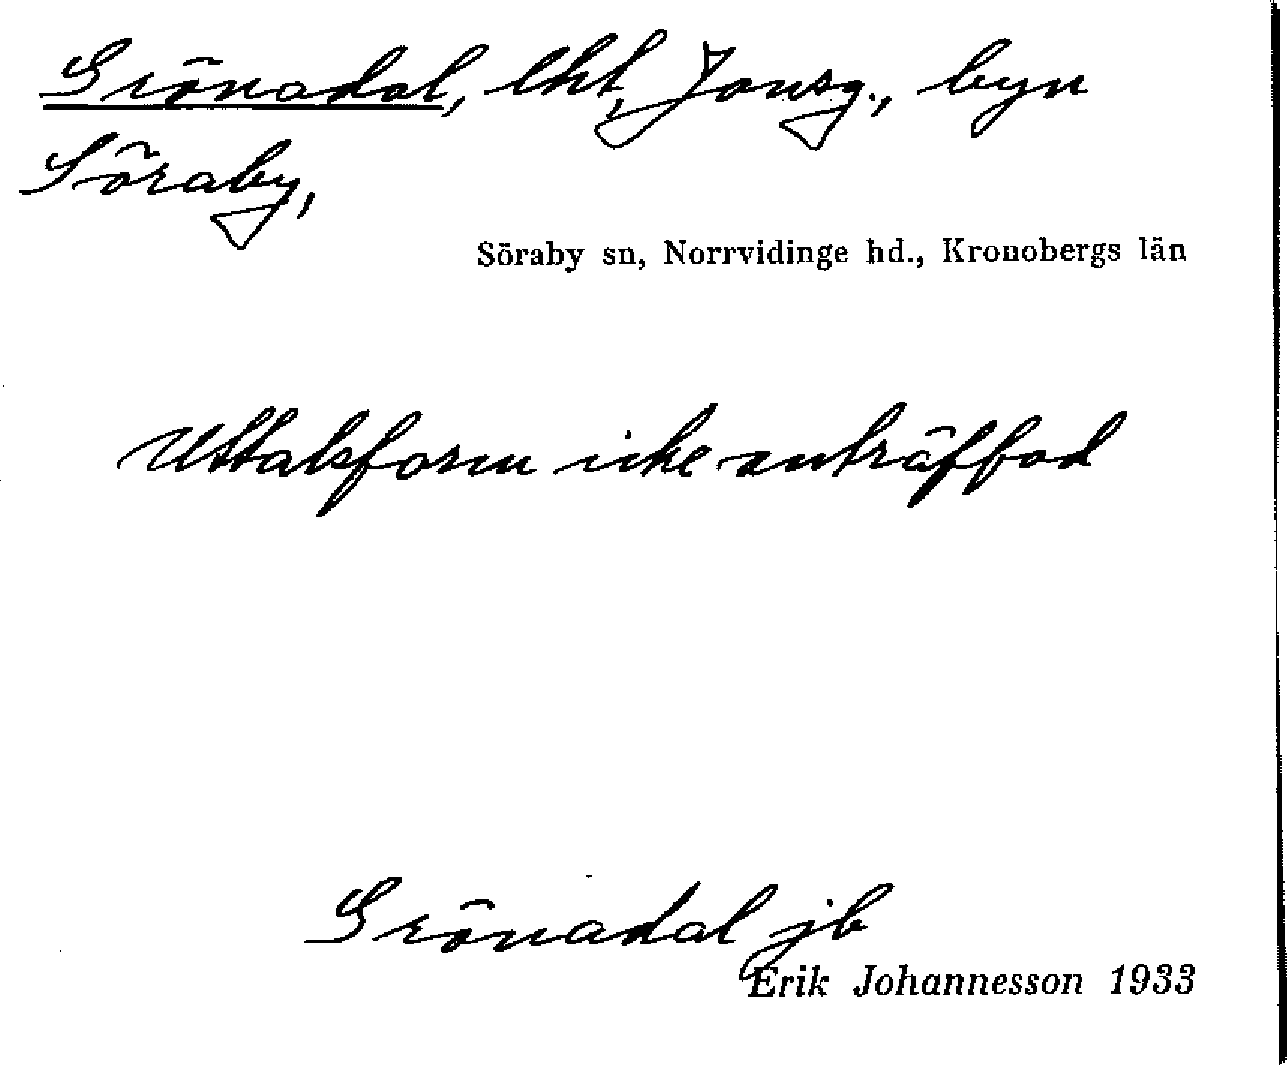 Grönadal, lht, Jonsg., byn
Söraby,
Söraby sn, Norrvidinge hd., Kronobergs län
Uttalsform icke anträffad
Grönadal jb
Erik Johannesson 1933